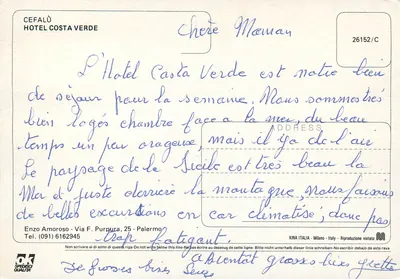 CEFALÙ
HOTEL COSTA VERDE
26152/C
Chère Maman
L'Hotel Costa Verde est notre lieu
de séjour pour la semaine. Nous sommes très
bien logés chambre face a la mer, du beau
ADDRESS
temps un peu orageux, mais il y a de l'air
Le paysage de la Sicile est très beau la
Mer et juste derrière la montagne, nous faisons
de belles excursions en car climatisé, donc pas
trop fatigant.
Enzo Amoroso - Via F. Purpura, 25 - Palermo
Tel. (091) 6162945
KINA ITALIA - Milano - Italy - Riproduzione vietata
A bientôt grosses bises
Je
bises